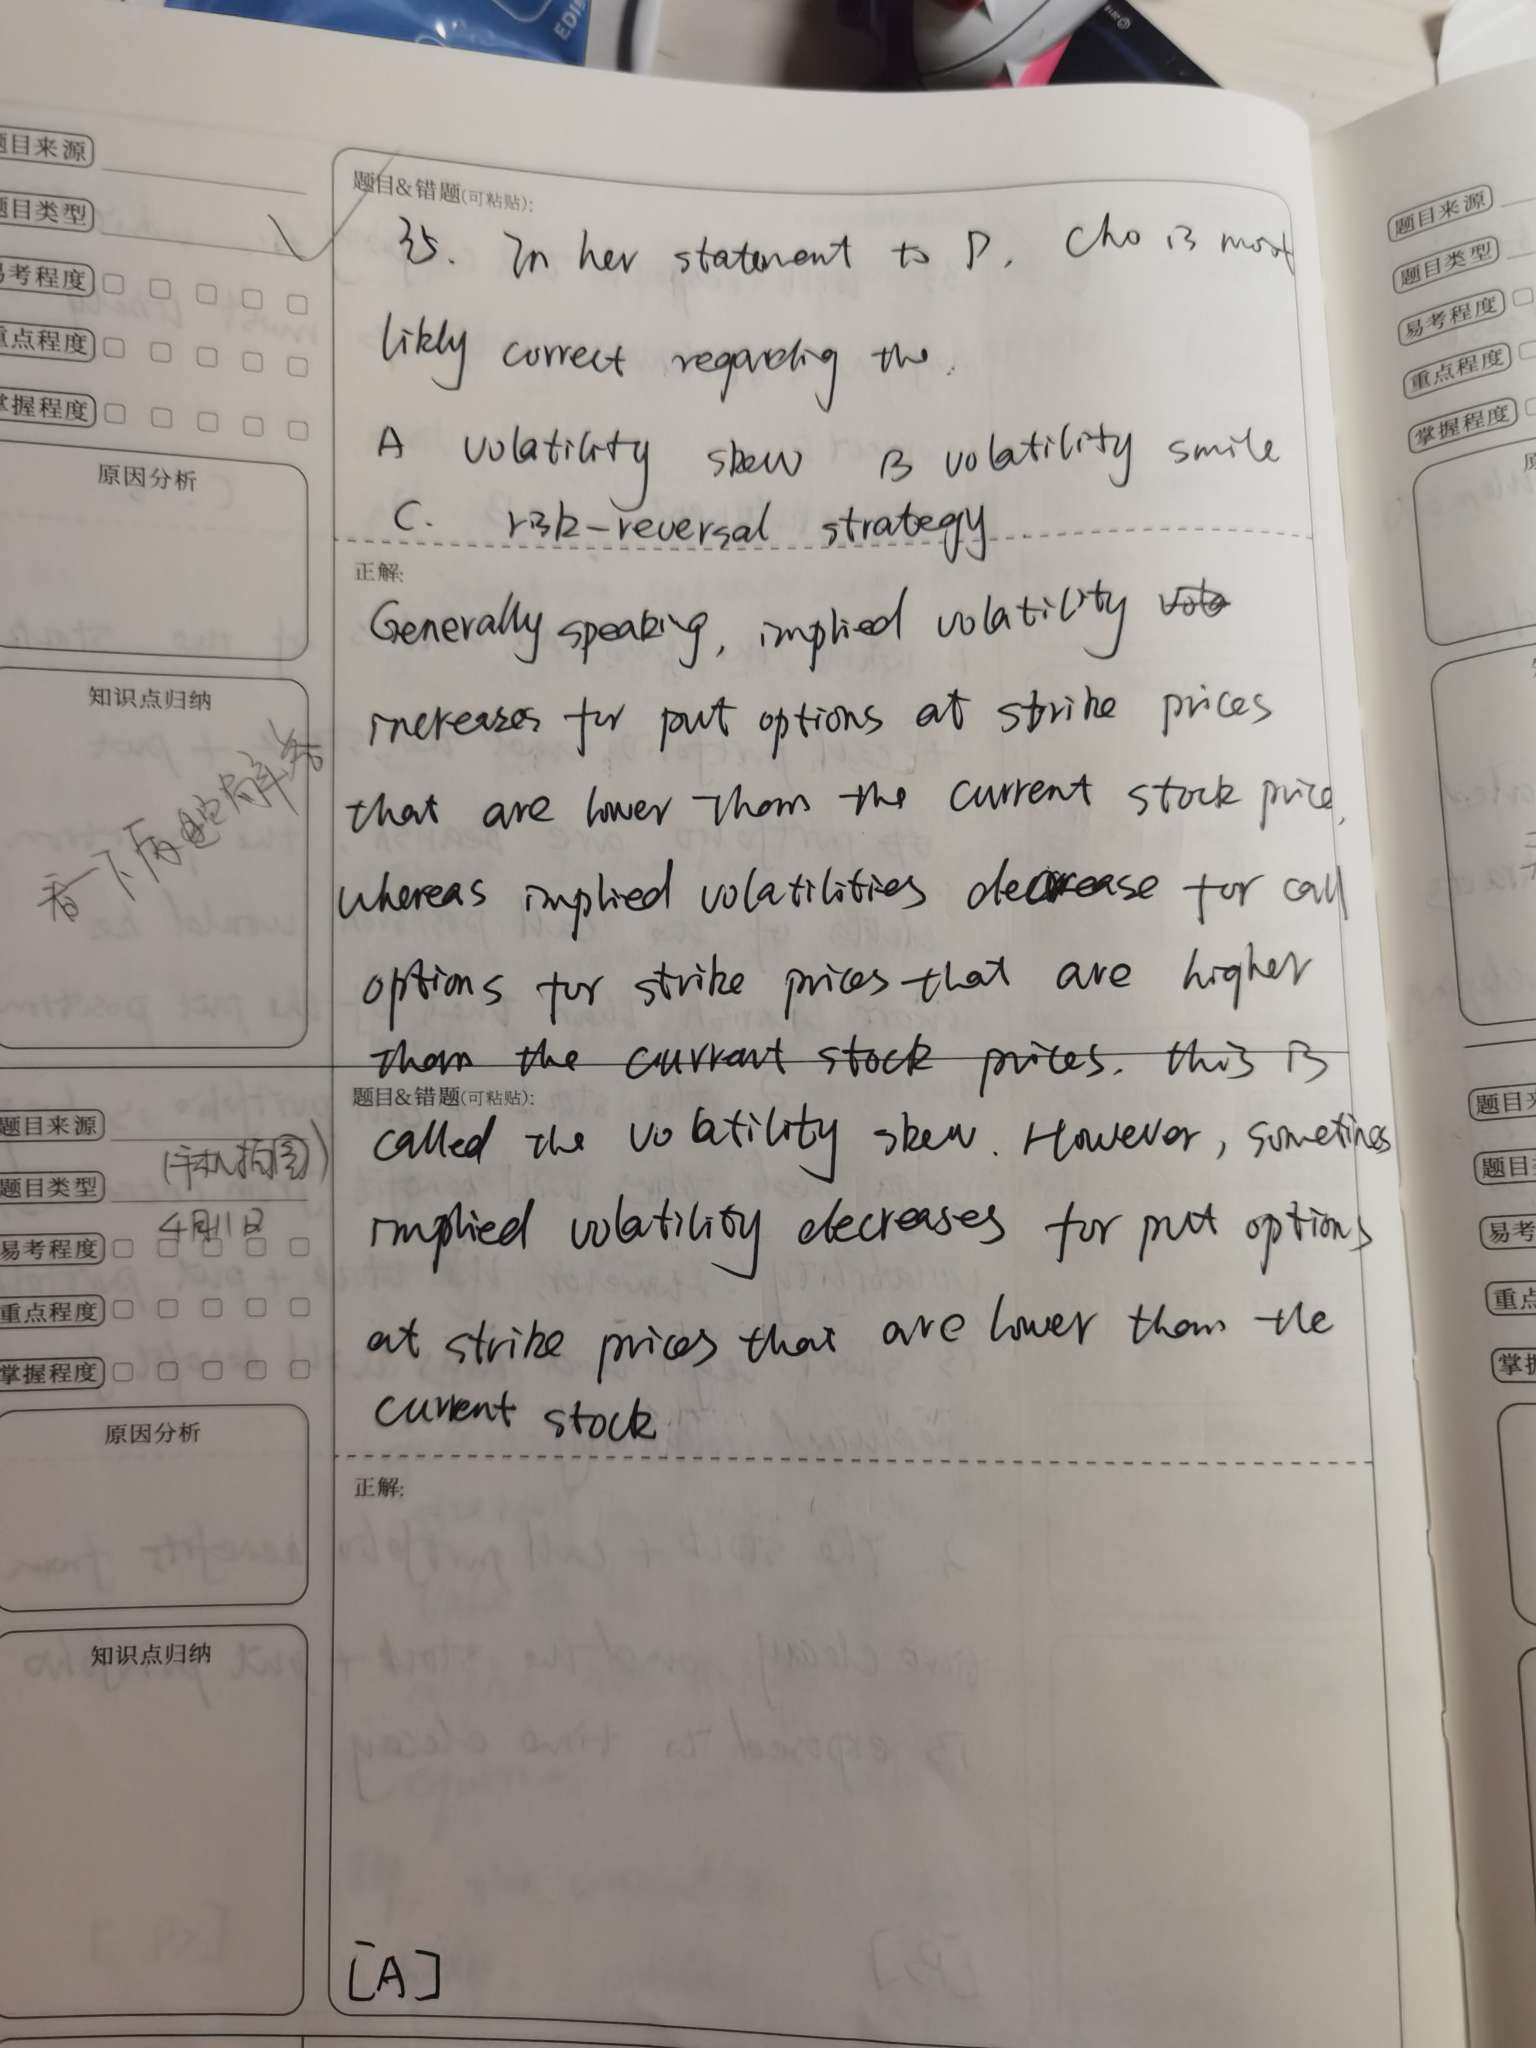 EDI
题目来源
题目类型
易考程度
重点程度
掌握程度
原因分析
知识点归纳
看一下
题目&错题(可粘贴):
35. In her statement to D, Cho is most
likly correct regarding the.
A volatility skew B volatility smile
C. risk-reversal strategy
正解:
Generally speaking, implied volatility vola
increases for put options at strike prices
that are lower than the current stock price,
whereas implied volatilities decrease for call
options for strike prices that are higher
than the current stock prices. this is
题目&错题(可粘贴):
called the volatility skew. However, sometimes
implied volatility decreases for put options
at strike prices that are lower than the
current stock
正解:
[A]
题目来源
(手机拍图)
题目类型
4月11日
易考程度
重点程度
掌握程度
原因分析
知识点归纳
题目来源
题目类型
易考程度
重点程度
掌握程度
题目来
题目
易考
重点
掌握